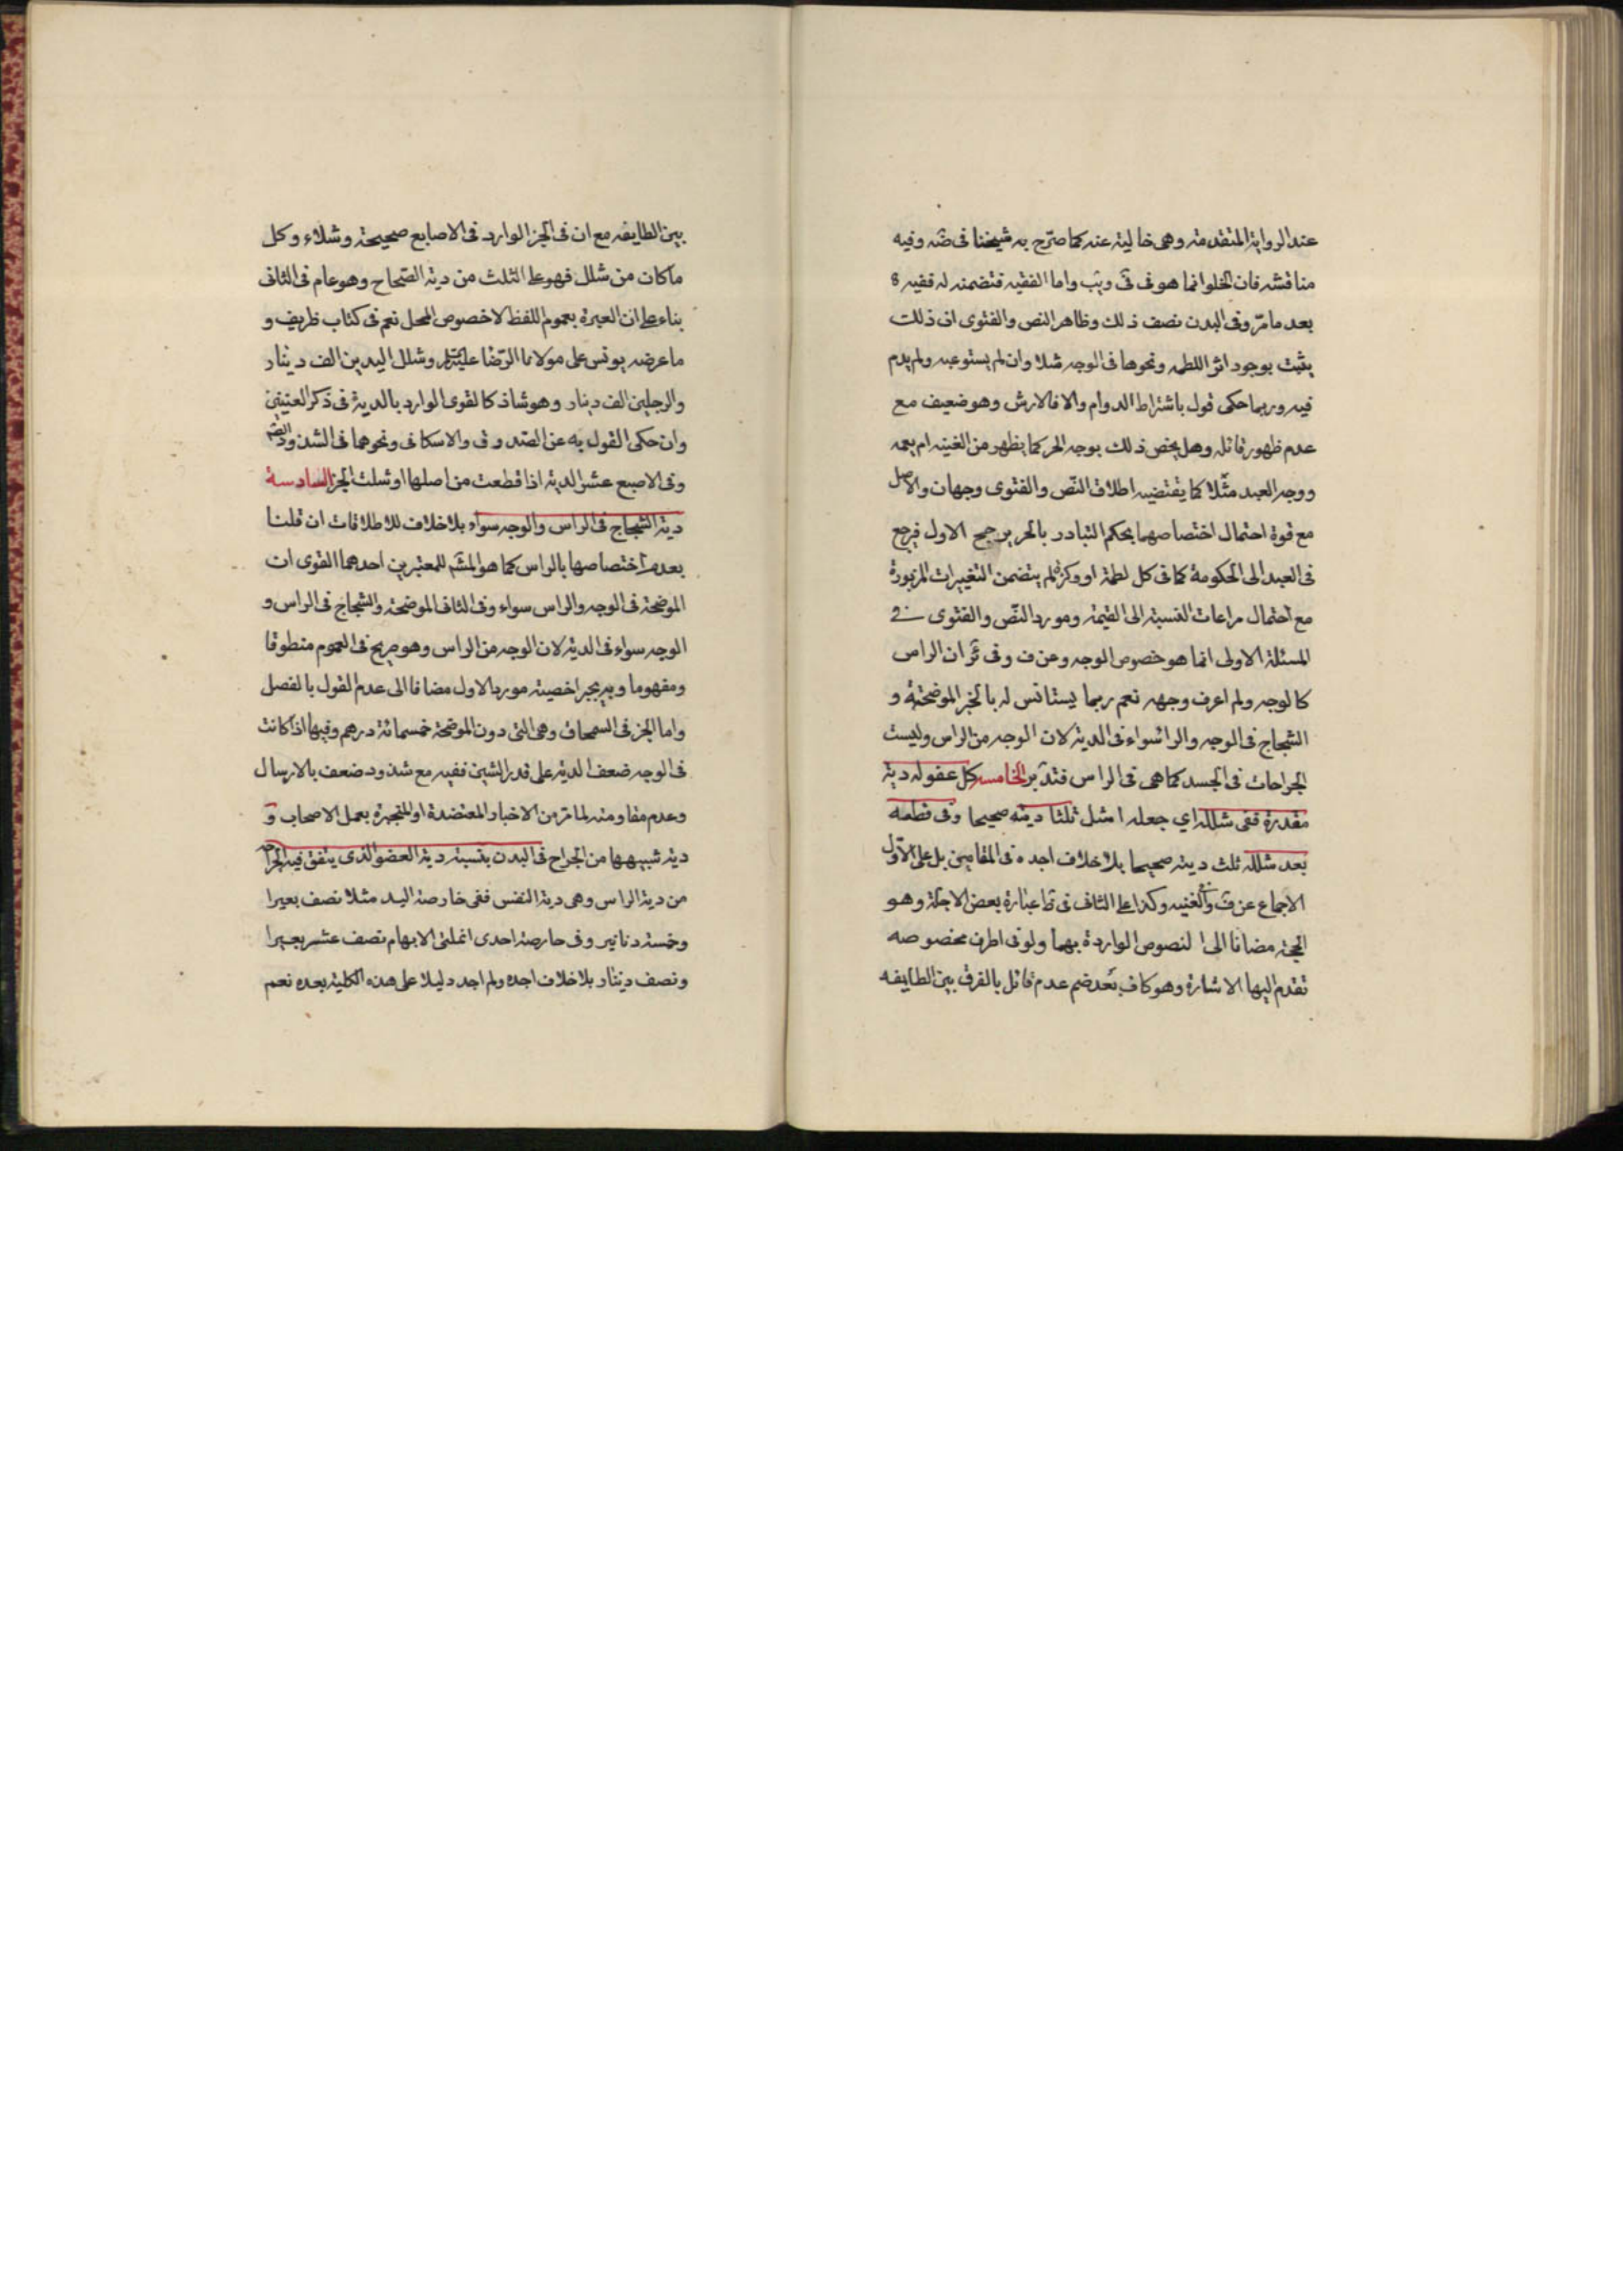 عند الرواية المتقدمة وهى خالية عنه كما صرّح به شيخنا فى ضه وفيه
مناقشه فان الخلو انما هو فى فى ويب واما الفقيه فتضمنه له ففيه
بعد مامرّ وفى البدن نصف ذلك وظاهر النص والفتوى ان ذلك
يثبت بوجود اثر اللطمه ونحوها فى الوجه مثلا وان لم يستوعبه ولم يدم
فيه وربما حكى قول باشتراط الدوام والا فالارش وهو ضعيف مع
عدم ظهور قائله وهل يخص ذلك بوجه الحر كما يظهر من الغنيه ام يعمه
ووجه العبد مثلا كما يقتضيه اطلاق النّص والفتوى وجهان والاصل
مع قوة احتمال اختصاصهما بحكم التبادر بالحر يرجح الاول فيرجع
فى العبد الى الحكومة كما فى كل لطمة او وكزة لم يتضمن التغييرات المزبورة
مع احتمال مراعات النسبة الى القيمة ومورد النّص والفتوى فى
المسئلة الاولى انما هو خصوص الوجه وعن ف وفى ئر ان الراس
كالوجه ولم اعرف وجهه نعم ربما يستانس له بالخبر الموضحة و
الشجاج فى الوجه والراسواء فى الدية لان الوجه من الراس وليست
الجراحات فى الجسد كما هى فى الراس فتدبر الخامسه كل عضو له دية
مقدرة ففى شلله اي جعله اشل ثلثا ديته صحيحا وفى قطعه
بعد شلله ثلث ديته صحيحا بلا خلاف اجده فى المقامين بل على الاول
الاجماع عن ف والغنيه وكذا على الثانى فى ظاعبارة بعض الاجلة وهو
الحجة مضافا الى النصوص الواردة بهما ولو فى اطرف مخصوصه
تقدم اليها الاشارة وهو كاف بعد ضم عدم قائل بالفرق بين الطايفه
بين الطايفه مع ان فى الخبر الوارد فى الاصابع صحيحة وشلاء وكل
ماكان من شلل فهو على الثلث من دية الصّحاح وهو عام فى الثانى
بناء على ان العبرة بعموم اللفظ لا خصوص المحل نعم فى كتاب ظريف و
ما عرضه يونس على مولانا الرّضا عليه السلم وشلل اليدين الف دينار
والرجلين الف دينار وهو شاذ كالقوى الوارد بالدية فى ذكر العنين
وان حكى القول به عن الصّدوق والاسكافى ونحوهما فى الشذوذ
وفى الاصبع عشر الدية اذا قطعت من اصلها او شلت الخبر السادسة
دية الشجاج فى الراس والوجه سواء بلا خلاف للاطلاقات ان قلنا
بعدم اختصاصها بالراس كما هو المشم للمعتبرين احدهما القوى ان
الموضحة فى الوجه والراس سواء وفى الثانى الموضحة والشجاج فى الراس و
الوجه سواء فى الدية لان الوجه من الراس وهو صريح فى العموم منطوقا
ومفهوما وبه يجبر اخصية مورد الاول مضافا الى عدم القول بالفصل
واما الخبر فى السمحاق وهى التى دون الموضحة خمسمائة درهم وفيها اذا كانت
فى الوجه ضعف الدية على قدر الشين ففيه مع شذوذ ضعف بالارسال
وعدم مقاومته لمامرّ من الاخبار المعتضدة او المنجبرة بعمل الاصحاب و
دية شبيهها من الجراح فى البدن بنسبة دية العضو الذى يتفق فيه الجراح
من دية الراس وهى دية النفس ففى خارصة اليد مثلا نصف بعيرا
وخمسة دنانير وفى حارصة احدى انملتى الابهام نصف عشر بعيرا
ونصف دينار بلا خلاف اجده ولم اجد دليلا على هذه الكلية بعده نعم